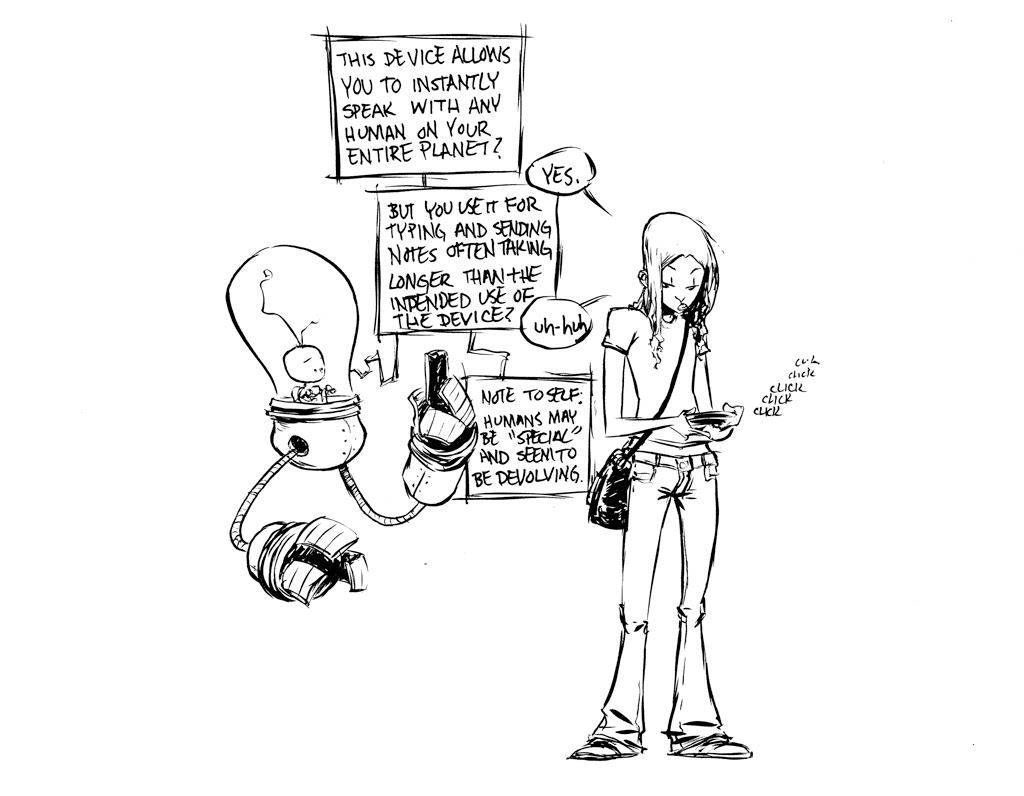 THIS DEVICE ALLOWS
YOU TO INSTANTLY
SPEAK WITH ANY
HUMAN ON YOUR
ENTIRE PLANET?
YES.
BUT YOU USE IT FOR
TYPING AND SENDING
NOTES OFTEN TAKING
LONGER THAN THE
INTENDED USE OF
THE DEVICE?
uh-huh
NOTE TO SELF:
HUMANS MAY
BE "SPECIAL"
AND SEEM TO
BE DEVOLVING.
click
CLICK
CLICK
CLICK